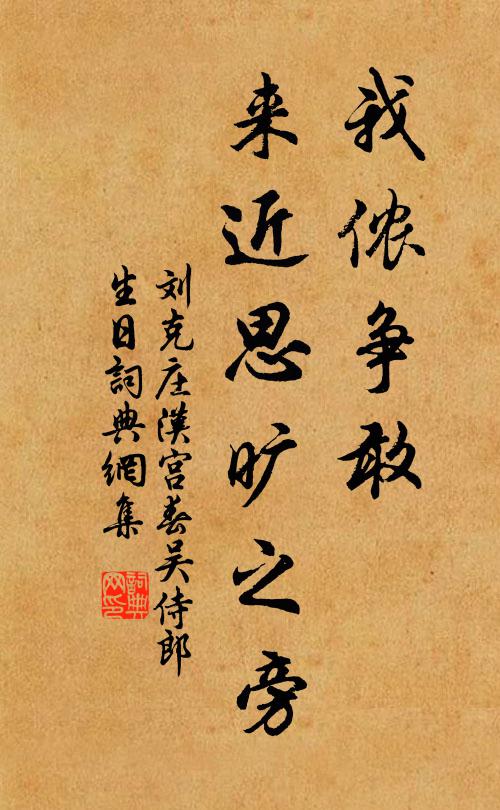 我侬争敢
来近思旷之旁
刘克庄漢宫春吴侍郎
生日詞典網集
詞典网印